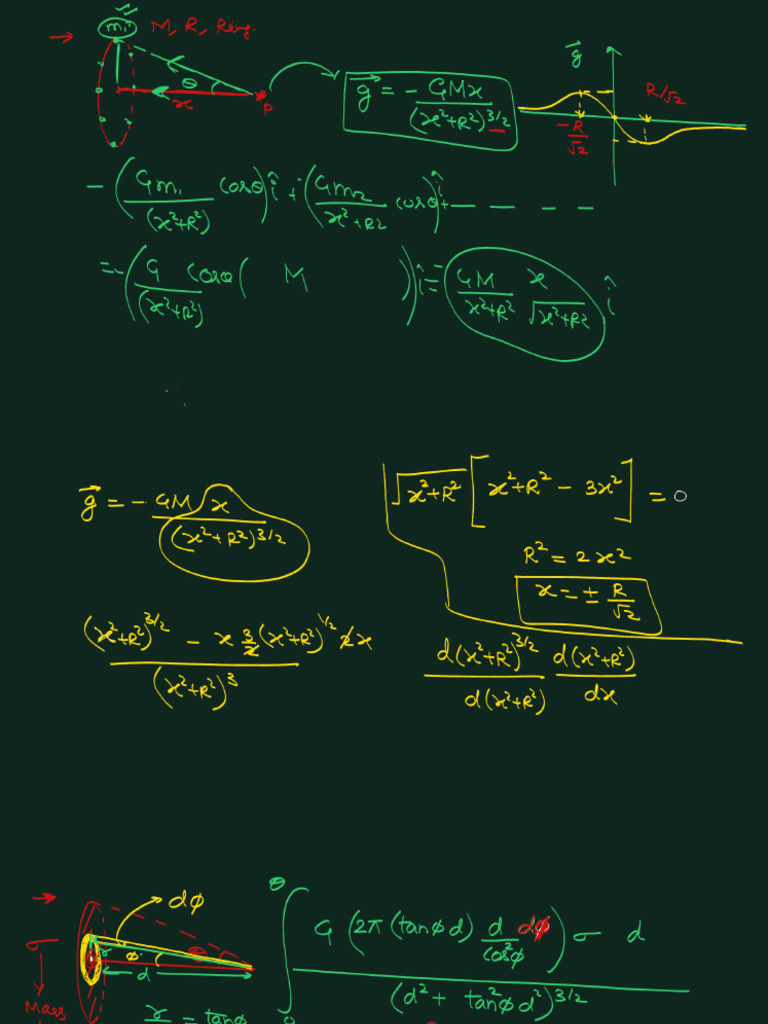 m₁ M, R, Ring.
θ
x P
g⃗ = - GMx / (x²+R²)^3/2
g⃗
R/√2
-R/√2
- (Gm₁/(x²+R²) cosθ) î + (Gm₂/x²+R² cosθ) î + — — — —
= - (G/(x²+R²) cosθ ( M )) î = GM/x²+R² x/√x²+R² î
g⃗ = - GM x / (x²+R²)^3/2
√x²+R² [x²+R² - 3x²] = 0
R² = 2x²
x = ± R/√2
(x²+R²)^3/2 - x 3/2 (x²+R²)^1/2 2x / (x²+R²)³
d(x²+R²)^3/2 / d(x²+R²) d(x²+R²) / dx
dφ
σ
Mass
r φ
d
θ ∫ 0 G (2π (tanφ d) d/cos²φ dφ) σ d / (d² + tan²φ d²)^3/2
r/ = tanφ